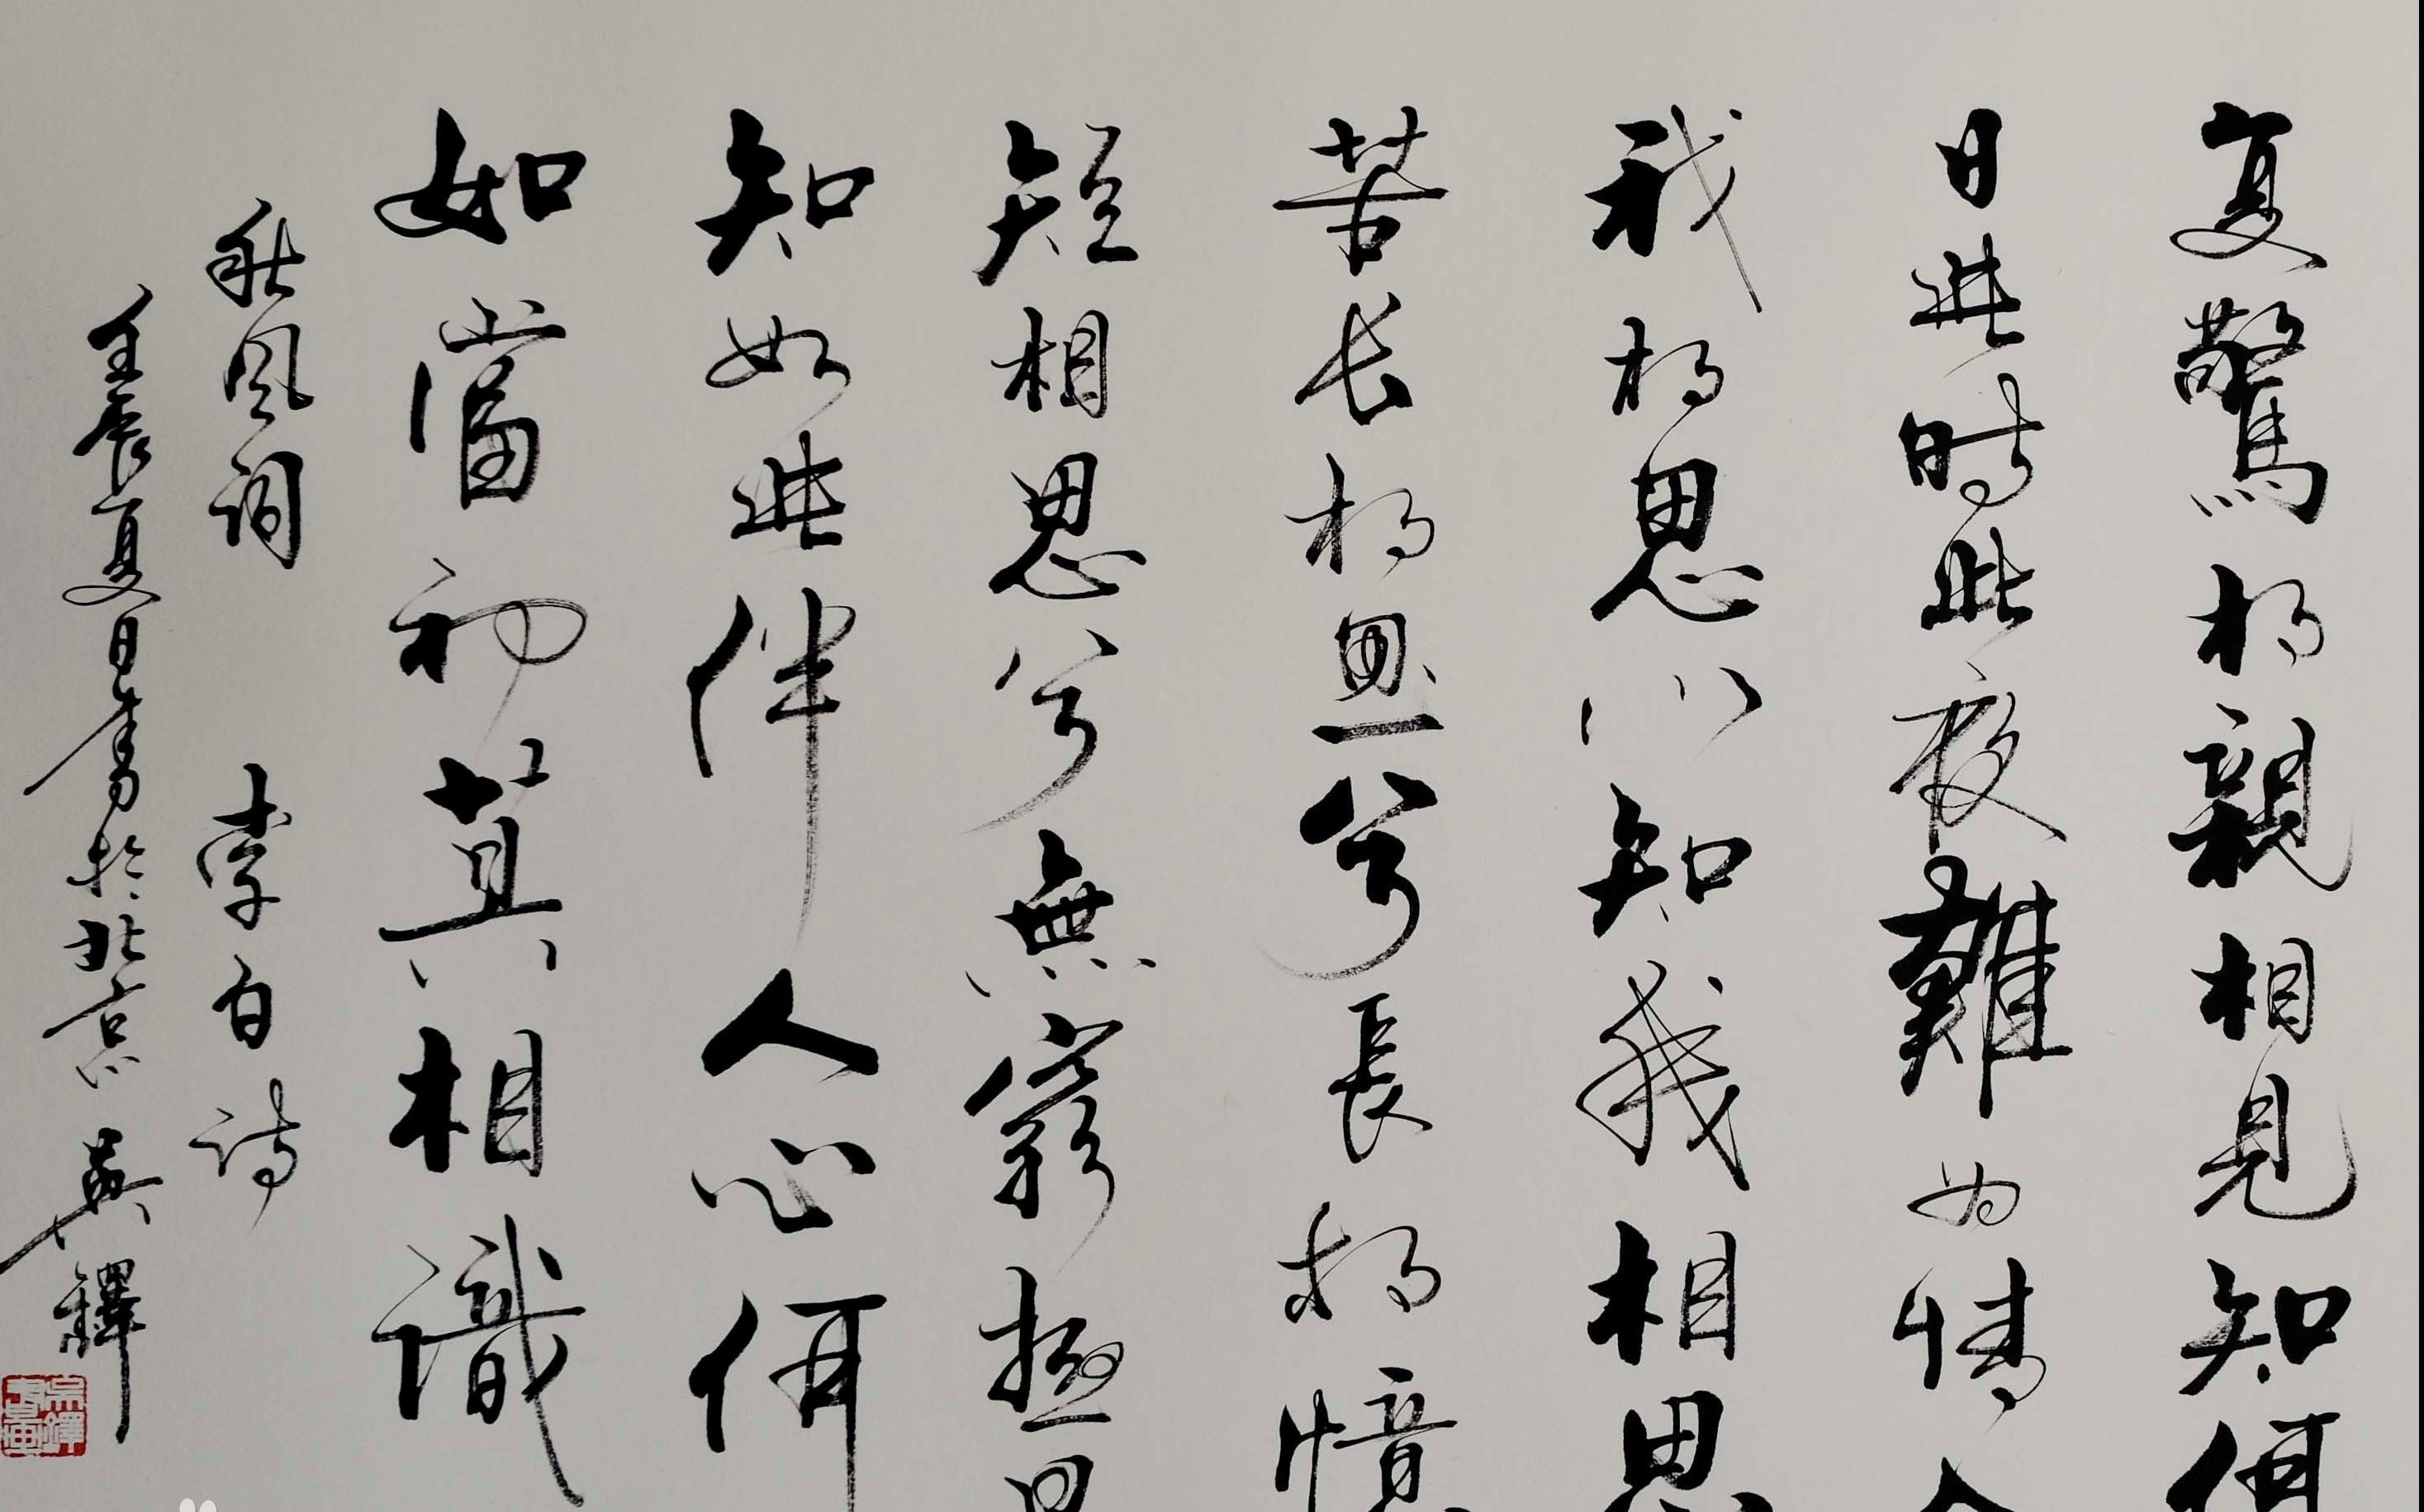 复驚相親相見知何
日此時此夜難為情入
我相思門知我相思
苦长相思兮長相憶
短相思兮無窮極早
知如此伴人心何
如當初莫相識
秋風詞 李白詩
壬辰夏日書於北京 吴鐸